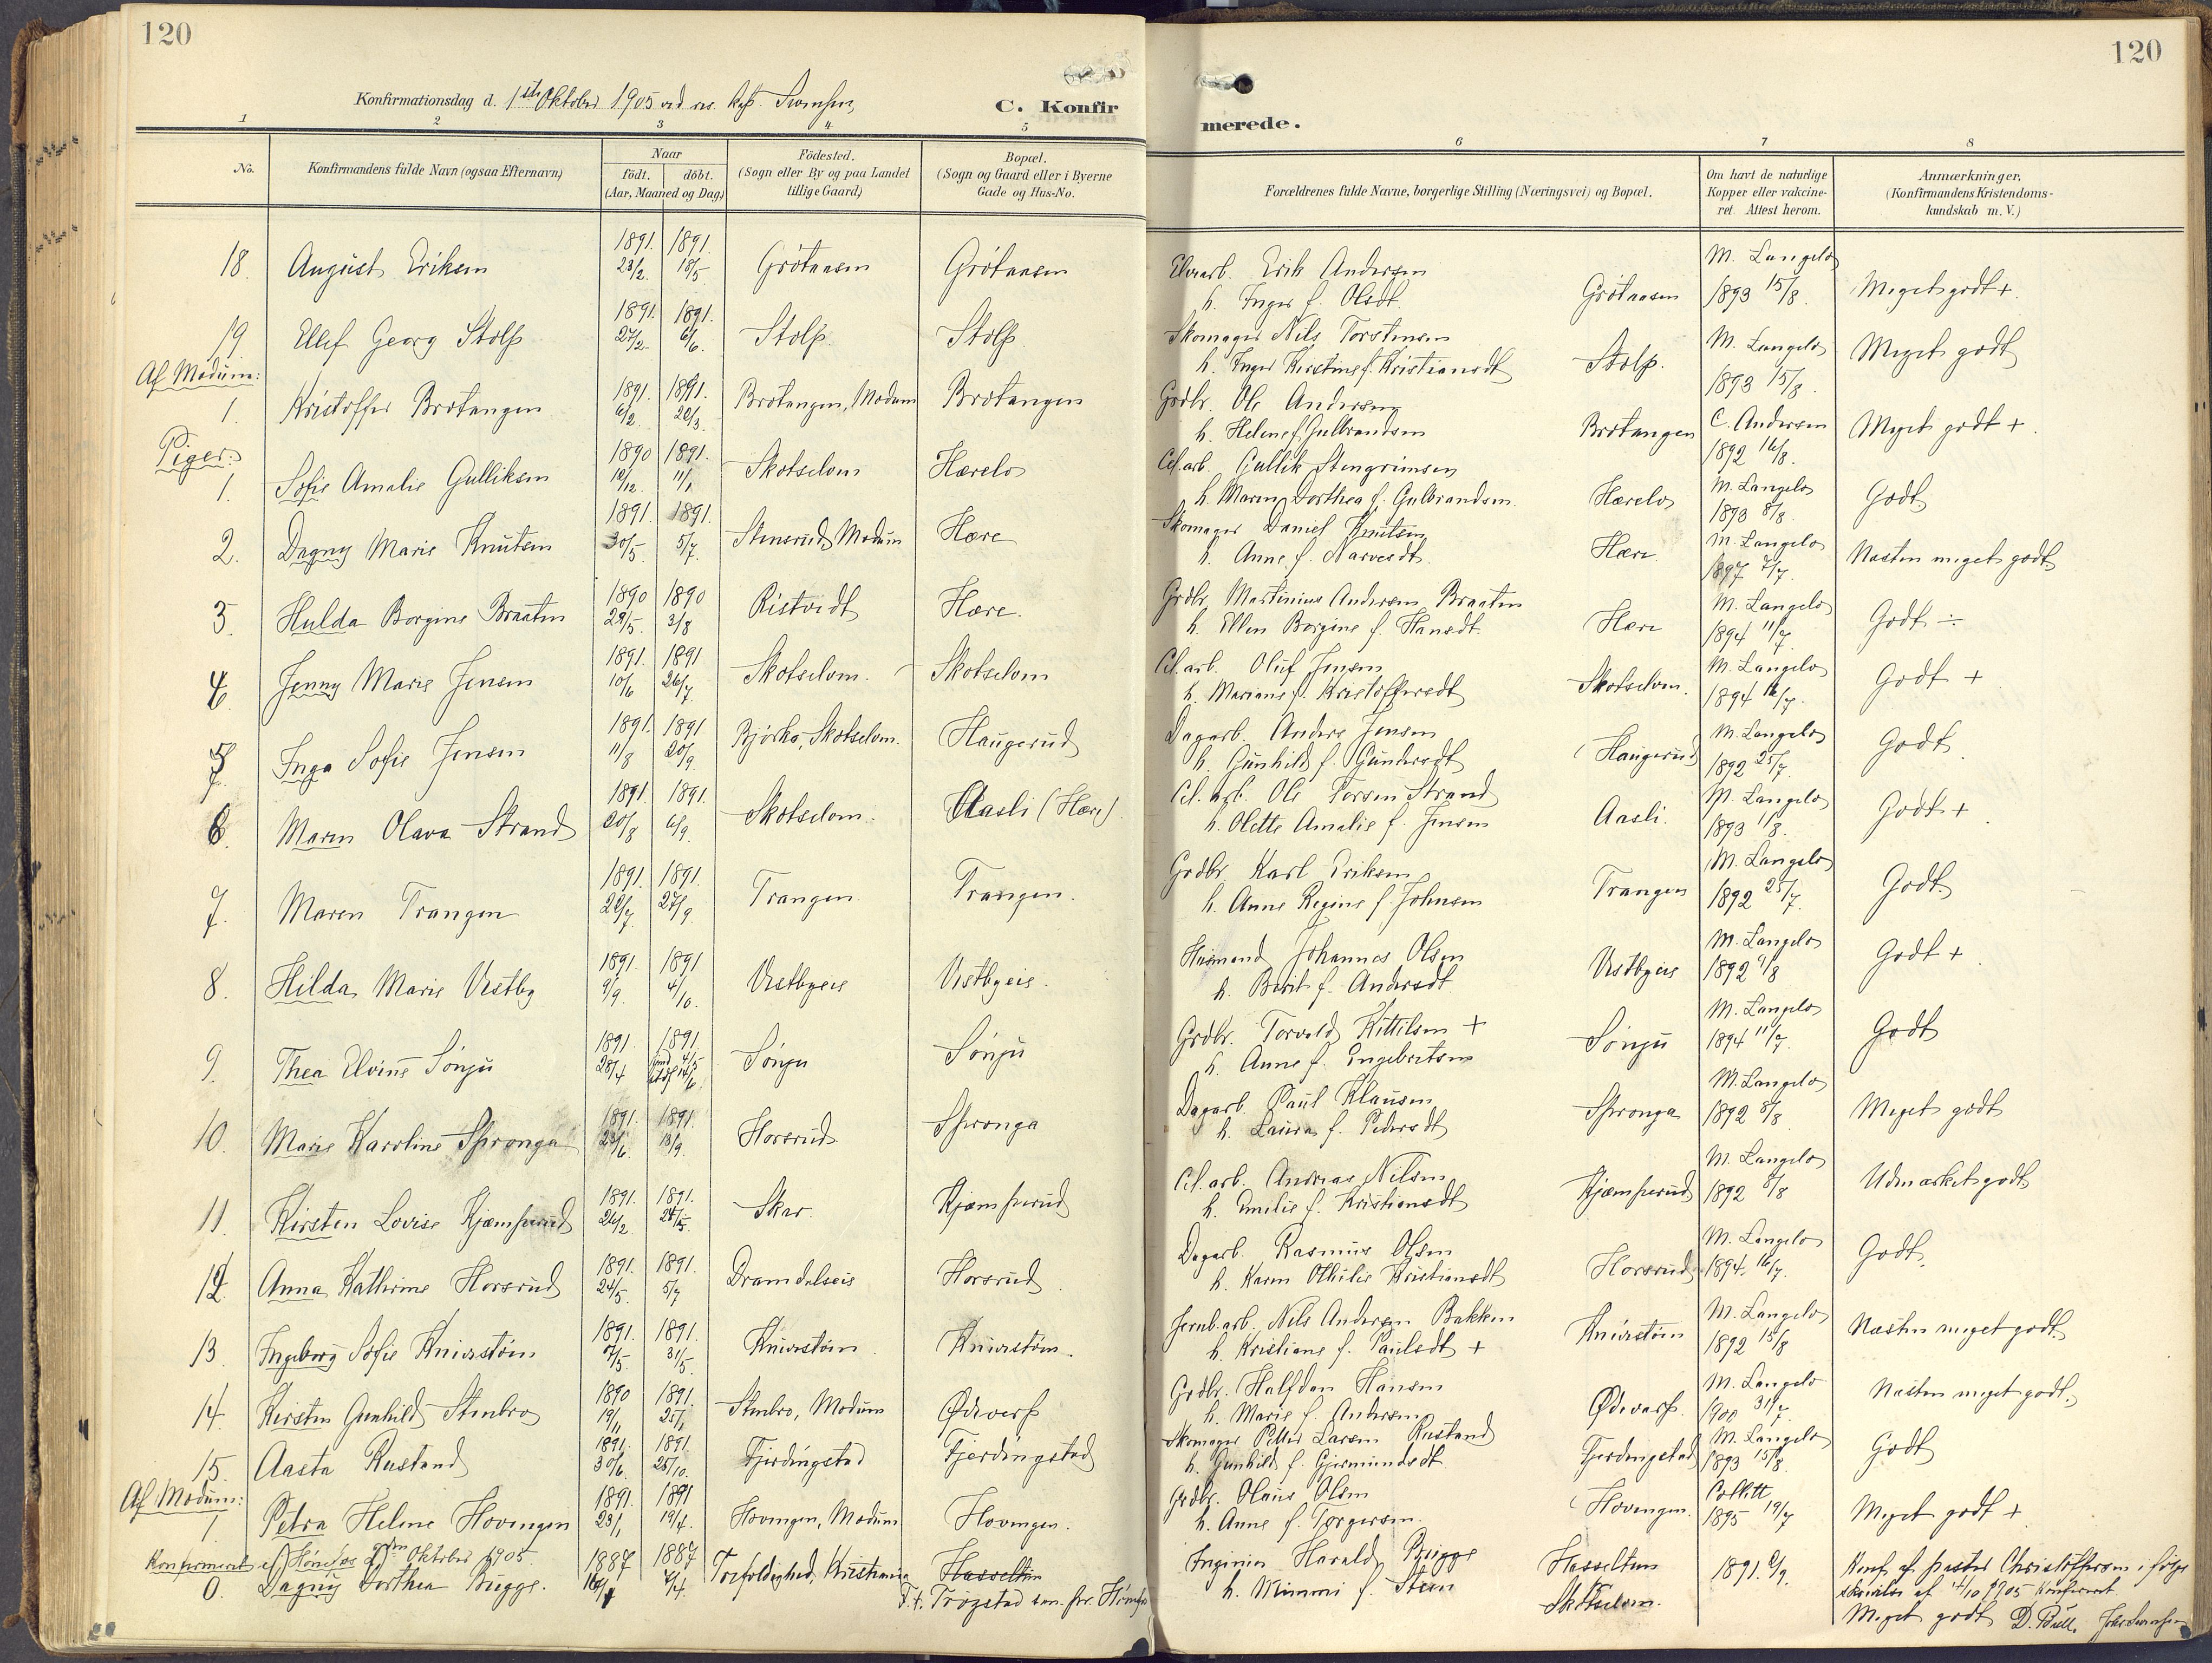 120
120
Konfirmationsdag d. 1ste Oktober 1905 ved
C. Konfir
merede.
1 2 3 4 5 6 7 8
No.
Konfirmandens fulde Navn (ogsaa Efternavn)
Naar
födt. döbt.
(Aar, Maaned og Dag)
Födested.
(Sogn eller By og paa Landet
tillige Gaard)
Bopæl.
(Sogn og Gaard eller i Byerne
Gade og Hus-No.
Forældrenes fulde Navne, borgerlige Stilling (Næringsvei) og Bopæl.
Om havt de naturlige
Kopper eller vakcine-
ret. Attest herom.
Anmærkninger.
(Konfirmandens Kristendoms-
kundskab m. V.)
1891. 1891. M. Langelo
18. August Eriksen 23/2. 18/5. Grötaasen Grötaasen Elvearb. Erik Andersen
h. Inger f. Olsdt. Grötaasen 1893 15/8. Meget godt +.
1891. 1891.
19 Ellef Georg Stolp 27/2. 6/6. Stolp. Stolp. Skomager Nils Torstensen M. Langelo
h. Inger Kirstine f. Kristiansdt Stolp. 1893 15/8. Meget godt
Af Modum:
1891. 1891.
1. Kristoffer Brotangen 6/2. 20/3. Brotangen, Modum Brotangen Grdbr. Ole Andersen C. Andersen
h. Helene f. Gulbrandsen Brotangen 1892 16/8. Meget godt +.
Piger:
1890 1891.
1. Sofie Amalie Gulliksen 12/12. 11/1 Skotselven Hærelo Cel.arb. Gullik Stengrimsen M. Langelo
h. Maren Dorthea f. Gulbrandsen. Hærelo 1893 8/8. Godt
1891. 1891.
2. Dagny Marie Knutsen 30/5. 5/7. Stensrud, Modum Hære Skomager Daniel Knutsen M. Langelo
h. Anne f. Narvesdt. Hære 1897 7/7. Næsten meget godt
1890 1890
3. Hulda Borgine Braaten 29/5. 3/8 Ristvedt Hære. Grdbr. Martinius Andersen Braaten M. Langelo
h. Ellen Borgine f. Hansdt. Hære 1894 11/7. Godt ÷
1891. 1891
4. Jenny Marie Jensen 10/6 26/7. Skotselven. Skotselven Cel.arb. Oluf Jensen M. Langelo
h. Mariane f. Kristoffersdt Skotselven. 1894 16/7. Godt +
1891. 1891
5. Inga Sofie Jensen 11/8 20/9. Björka, Skotselven. Haugerud Dagarb. Anders Jensen M. Langelo
h. Gunhild f. Gundersdt Haugerud 1892 25/7. Godt.
1891. 1891.
6. Maren Olava Strand 20/8 6/9. Skotselven. Aasli (Hære). Cel.arb. Ole Torsen Strand M. Langelo
h. Olette Amalie f. Jensen Aasli. 1893 1/8. Godt +.
1891. 1891.
7. Maren Trangen 22/7. 27/9. Trangen. Trangen. Grdbr. Karl Eriksen M. Langelo
h. Anne Regine f. Johnsen Trangen 1892 25/7. Godt.
1891. 1891
8. Hilda Marie Vestby 9/9. 4/10. Vestbyeie Vestbyeie. Husmand Johannes Olsen M. Langelo
h. Berit f. Andersdt. Vestbyeie 1892 9/8 Godt +.
1891. 1891.
9. Thea Elvine Sönju 28/4 4/5 14/6. Sönju Sönju Grdbr. Torvald Kittilsen + M. Langelo
h. Anne f. Engebretsen Sönju 1894 11/7. Godt
1891. 1891.
10. Marie Karoline Spronga 23/6. 13/9. Horsrud Spronga Dagarb. Paul Klausen M. Langelo
h. Laura f. Pedersdt Spronga 1892 8/8 Meget godt
1891. 1891.
11. Kirsten Lovise Kjæmperud 26/2. 24/5. Skar. Kjæmperud Cel.arb. Andreas Nilsen M. Langelo
h. Emilie f. Kristiansdt Kjæmperud 1892 8/8 Udmærket godt
1891. 1891.
12. Anna Kathrine Horsrud 24/5. 5/7 Dramdalseie Horsrud. Dagarb. Rasmus Olsen M. Langelo
h. Karen Othilie Kristiansdt Horsrud 1894. 16/7. Godt.
1891. 1891.
13. Ingeborg Sofie Kniverstöm 7/5. 31/5. Kniverstöm. Kniverstöm. Jernb.arb. Nils Andersen Bakken M. Langelo
h. Kristiane f. Paulsdt + Kniverstöm 1892 15/8 Næsten meget godt.
1890 1891.
14. Kirsten Gunhild Stenbro 19/1. 25/1 Stenbro, Modum Ødeverp Grdbr. Halfdan Hansen M. Langelo
h. Marie f. Andersen Ødeverp. 1900 31/7. Næsten meget godt.
1891. 1891.
15. Aasta Rustand 30/6. 25/10. Fjerdingstad Fjerdingstad Skomager Petter Larsen Rustand M. Langelo
h. Gunhild f. Gjermundsdt Fjerdingstad 1893 15/8. Godt
Af Modum:
1891. 1891
1 Petra Helene Hovengen 23/1. 19/4. Hovengen, Modum Hovengen. Grdbr. Olaus Olsen Collett
h. Anne f. Torgersen. Hovengen. 1895 19/7 Meget godt +
Konfirmeret Hönefos Oktober 1905.
1887 1887
0. Dagny Dorthea Bugge. 7/4. Trefoldighed, Kristiania Hasseltun Ingeniør Harald Bugge Hasseltun 1891. 2/9. Konf. af prester Christoffersen ifölge
Trögstad h. Mimmi f. Steen Skotselven. skrivelse af 14/10 1905 Konfirmeret
Meget godt D. Bull.